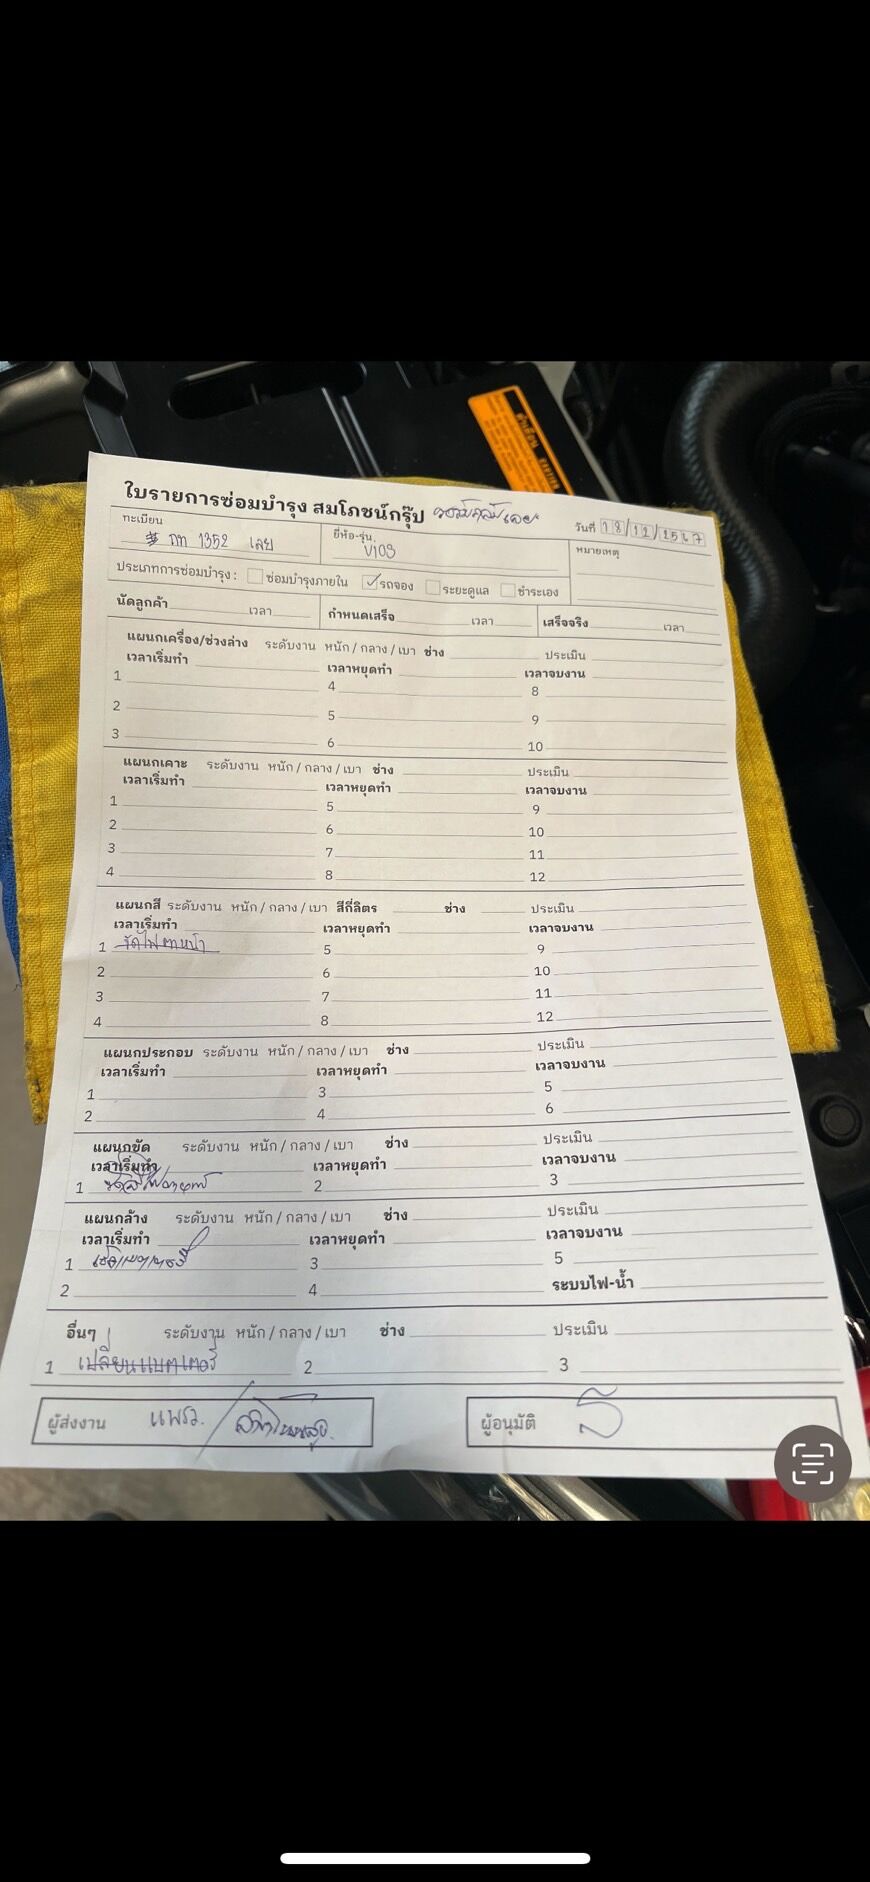 ใบรายการซ่อมบำรุง สมโภชน์กรุ๊ป
วันที่ 18/12/2567
ทะเบียน กท 1352 เลย
ยี่ห้อ-รุ่น. VIOS
หมายเหตุ
ประเภทการซ่อมบำรุง : ซ่อมบำรุงภายใน รถจอง ระยะดูแล ชำระเอง
นัดลูกค้า เวลา กำหนดเสร็จ เวลา เสร็จจริง เวลา
แผนกเครื่อง/ช่วงล่าง ระดับงาน หนัก / กลาง / เบา ช่าง ประเมิน
เวลาเริ่มทำ เวลาหยุดทำ เวลาจบงาน
1 4 8
2 5 9
3 6 10
แผนกเคาะ ระดับงาน หนัก / กลาง / เบา ช่าง ประเมิน
เวลาเริ่มทำ เวลาหยุดทำ เวลาจบงาน
1 5 9
2 6 10
3 7 11
4 8 12
แผนกสี ระดับงาน หนัก / กลาง / เบา สีกี่ลิตร ช่าง ประเมิน
เวลาเริ่มทำ เวลาหยุดทำ เวลาจบงาน
1 ขัดไฟตาหน้า 5 9
2 6 10
3 7 11
4 8 12
แผนกประกอบ ระดับงาน หนัก / กลาง / เบา ช่าง ประเมิน
เวลาเริ่มทำ เวลาหยุดทำ เวลาจบงาน
1 3 5
2 4 6
แผนกขัด ระดับงาน หนัก / กลาง / เบา ช่าง ประเมิน
เวลาเริ่มทำ เวลาหยุดทำ เวลาจบงาน
1 2 3
แผนกล้าง ระดับงาน หนัก / กลาง / เบา ช่าง ประเมิน
เวลาเริ่มทำ เวลาหยุดทำ เวลาจบงาน
1 3 5
2 4 ระบบไฟ-น้ำ
อื่นๆ ระดับงาน หนัก / กลาง / เบา ช่าง ประเมิน
1 เปลี่ยนแบตเตอรี่ 2 3
ผู้ส่งงาน แพรว. /
ผู้อนุมัติ